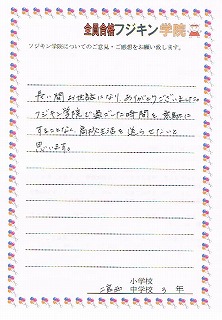 全員合格フジキン学院
フジキン学院についてのご意見・ご感想をお願い致します。
長い間お世話になり、ありがとうございました。
フジキン学院で過ごした時間を無駄に
することなく、高校生活を送らせたいと
思います。
小学校
中学校 3 年